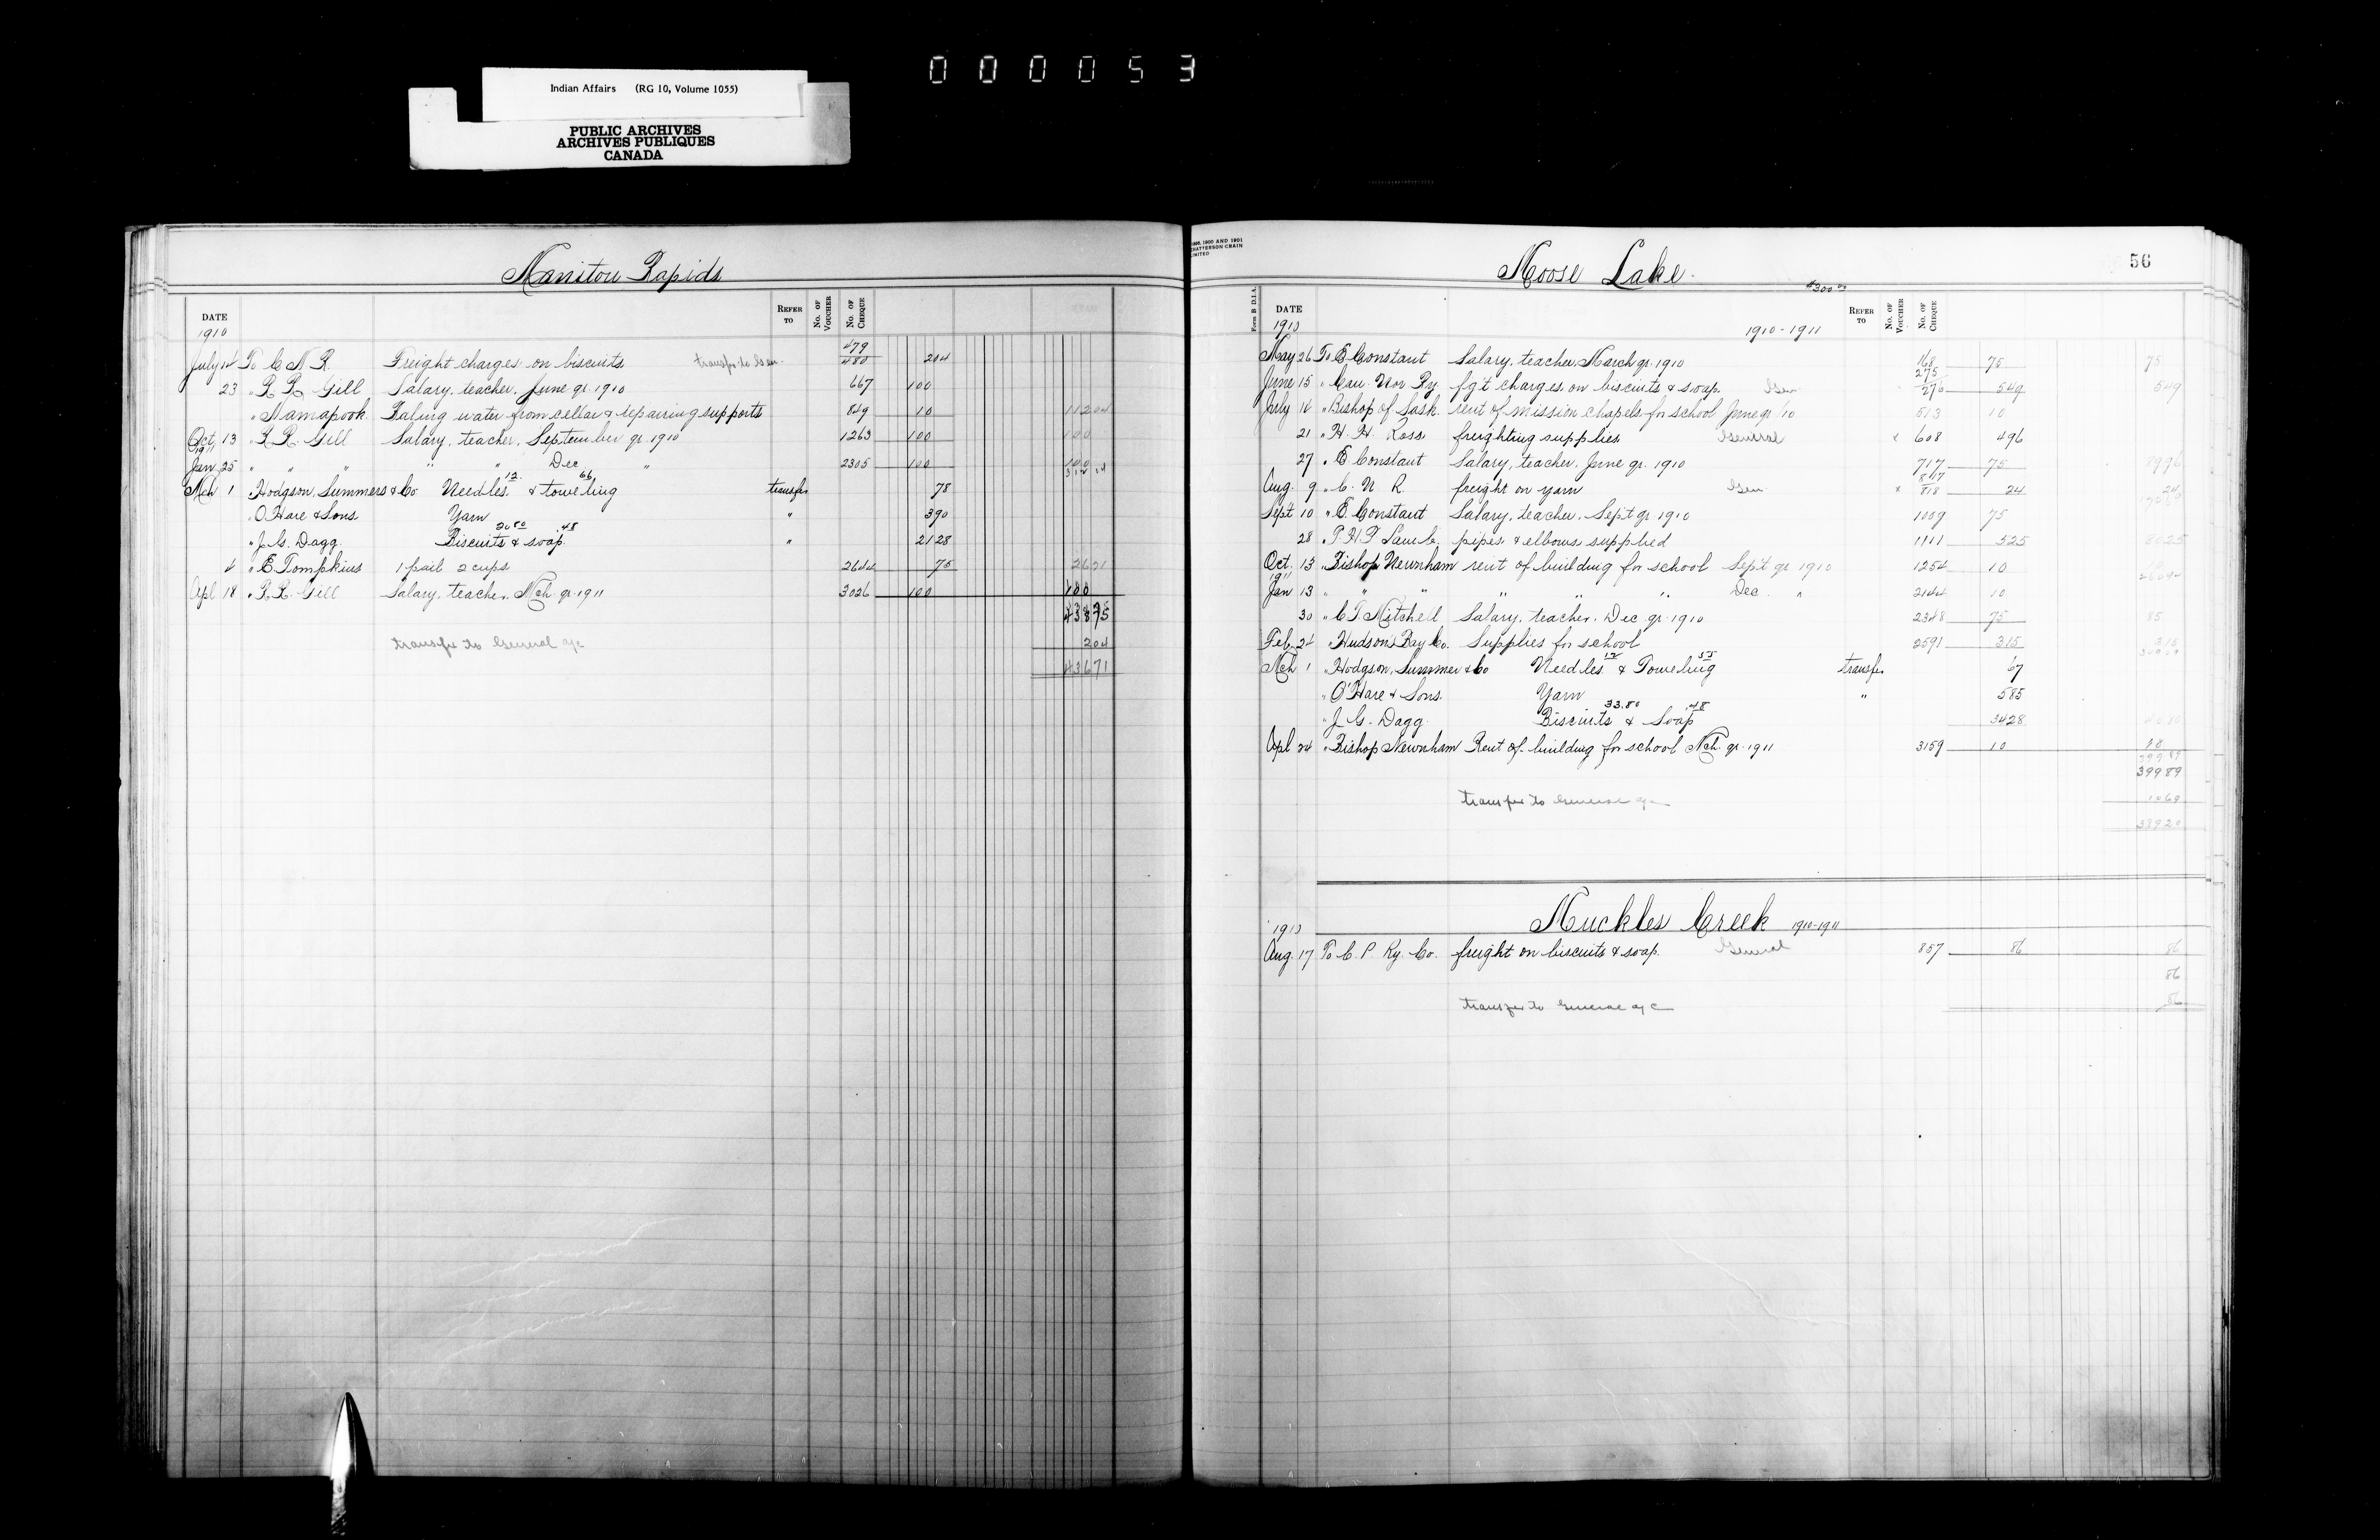 000053
Indian Affairs (RG 10, Volume 1055)
PUBLIC ARCHIVES
ARCHIVES PUBLIQUES
CANADA
Manitou Rapids
DATE REFER TO No. OF VOUCHER No. OF CHEQUE
1910
July 14 To C N R. Freight charges on biscuits transfer to Gen. 479 480 2 04
23 " R. R. Gill Salary, teacher, June qr. 1910 667 100
" Namapook Baling water from cellar & repairing supports 849 10 112 04
Oct. 13 " R. R. Gill Salary, teacher, September qr. 1910 1263 100 100
1911
Jan 25 " " " " " Dec " 2305 100 100
312 04
Mch 1 " Hodgson, Summers & Co Needles 12 & toweling 66 transfer 78
" O'Hare & Sons Yarn " 3 90
" J. G. Dagg Biscuits 20 80 & soap .48 " 21 28
4 " E. Tompkins 1 pail 2 cups 2644 75 26 71
Apl 18 " R. R. Gill Salary, teacher, Mch. qr. 1911 3026 100 100
438 75
transfer to General a/c 2 04
436 71
Form B D.I.A.
56
Moose Lake
$300 00
DATE REFER TO No. OF VOUCHER No. OF CHEQUE
1910 1910-1911
May 26 To E Constant Salary, teacher, March qr. 1910 168 75 75
June 15 " Can. Nor Ry. fg't charges on biscuits & soap. Gen 275 276 5 49 5 49
July 14 " Bishop of Sask. rent of mission chapels for school June qr /10 513 10
21 " H. H. Ross freighting supplies General x 608 4 96
27 " E. Constant Salary, teacher, June qr. 1910 717 75 79 96
Aug. 9 " C. N R. freight on yarn Gen x 817 818 24 24
Sept 10 " E. Constant Salary, teacher, Sept qr 1910 1009 75
28 " T. H. P. Lamb. pipes & elbows supplied 1111 5 25 80 25
Oct. 13 " Bishop Newnham rent of building for school Sept qr 1910 1254 10
1911
Jan 13 " " " " " Dec. " 2144 10
30 " C. T. Mitchell Salary, teacher, Dec qr. 1910 2348 75 85
Feb. 24 " Hudson's Bay Co. Supplies for school 2591 3 15 3 15
Mch 1 " Hodgson, Summer & Co Needles 12 & Toweling 55 transfer 67
" O'Hare & Sons. Yarn " 5 85
" J. G. Dagg Biscuits 33.80 & Soap .48 34 28 40 80
Apl 24 " Bishop Newnham Rent of building for school Mch. qr. 1911 3159 10 10
399 89
399 89
transfer to General a/c 10 69
389 20
Muckles Creek 1910-1911
1910
Aug. 17 To C. P. Ry. Co. freight on biscuits & soap. General 857 86 86
86
transfer to General a/c 86